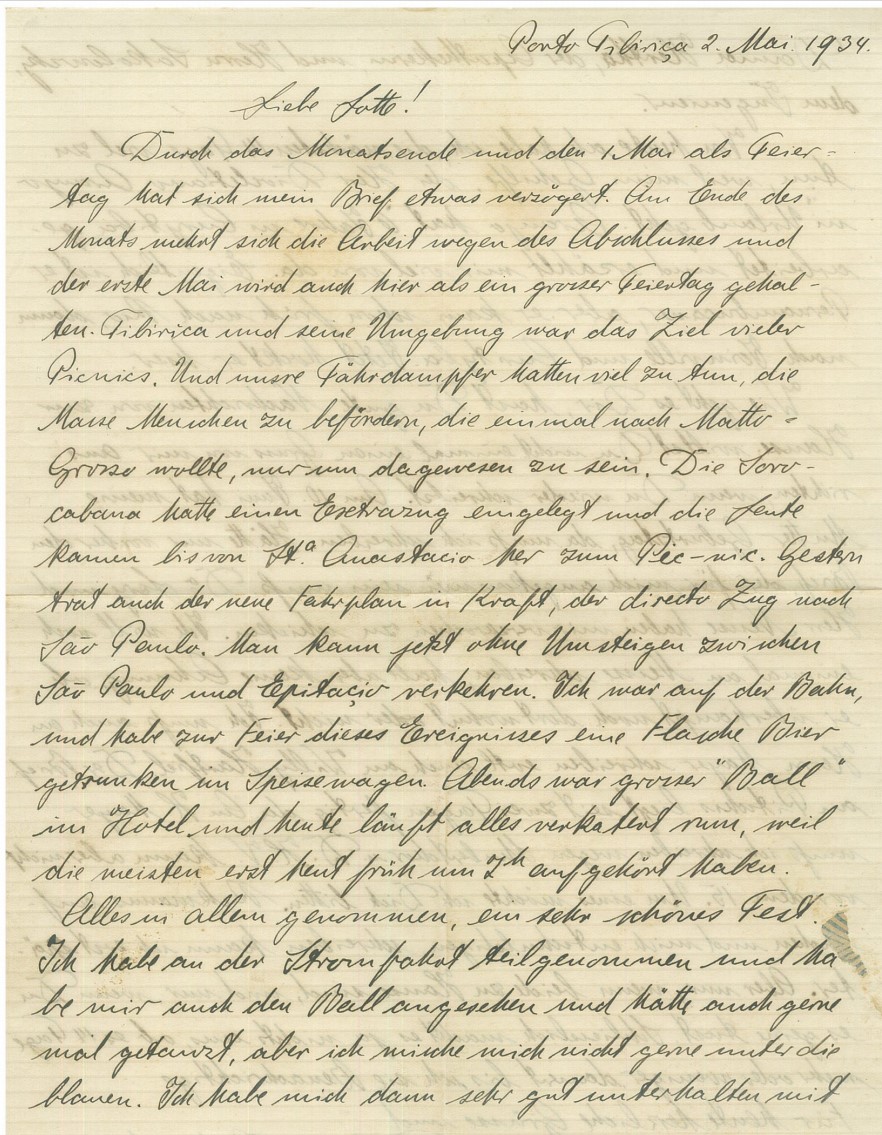 Porto Tibiriça 2. Mai. 1934.
Liebe Lotte!
Durch das Monatsende und den 1 Mai als Feier-
tag hat sich mein Brief etwas verzögert. Am Ende des
Monats mehrt sich die Arbeit wegen des Abschlusses und
der erste Mai wird auch hier als ein grosser Feiertag gehal-
ten. Tibirica und seine Umgebung war das Ziel vieler
Picnics. Und unsre Fährdampfer hatten viel zu tun, die
Masse Menschen zu befördern, die einmal nach Matto-
Grosso wollte, nur um dagewesen zu sein. Die Soro-
cabana hatte einen Extrazug eingelegt und die Leute
kamen bis von Sta. Anastacio her zum Pic-nic. Gestern
trat auch der neue Fahrplan in Kraft, der directo Zug nach
São Paulo. Man kann jetzt ohne Umsteigen zwischen
São Paulo und Epitaçio verkehren. Ich war auf der Bahn,
und habe zur Feier dieses Ereignisses eine Flasche Bier
getrunken im Speisewagen. Abends war grosser "Ball"
im Hotel und heute läuft alles verkatert rum, weil
die meisten erst heut früh um 7h aufgehört haben.
Alles in allem genommen, ein sehr schönes Fest.
Ich habe an der Stromfahrt teilgenommen und ha
be mir auch den Ball angesehen und hätte auch gerne
mal getanzt, aber ich mische mich nicht gerne unter die
blauen. Ich habe mich dann sehr gut unterhalten mit